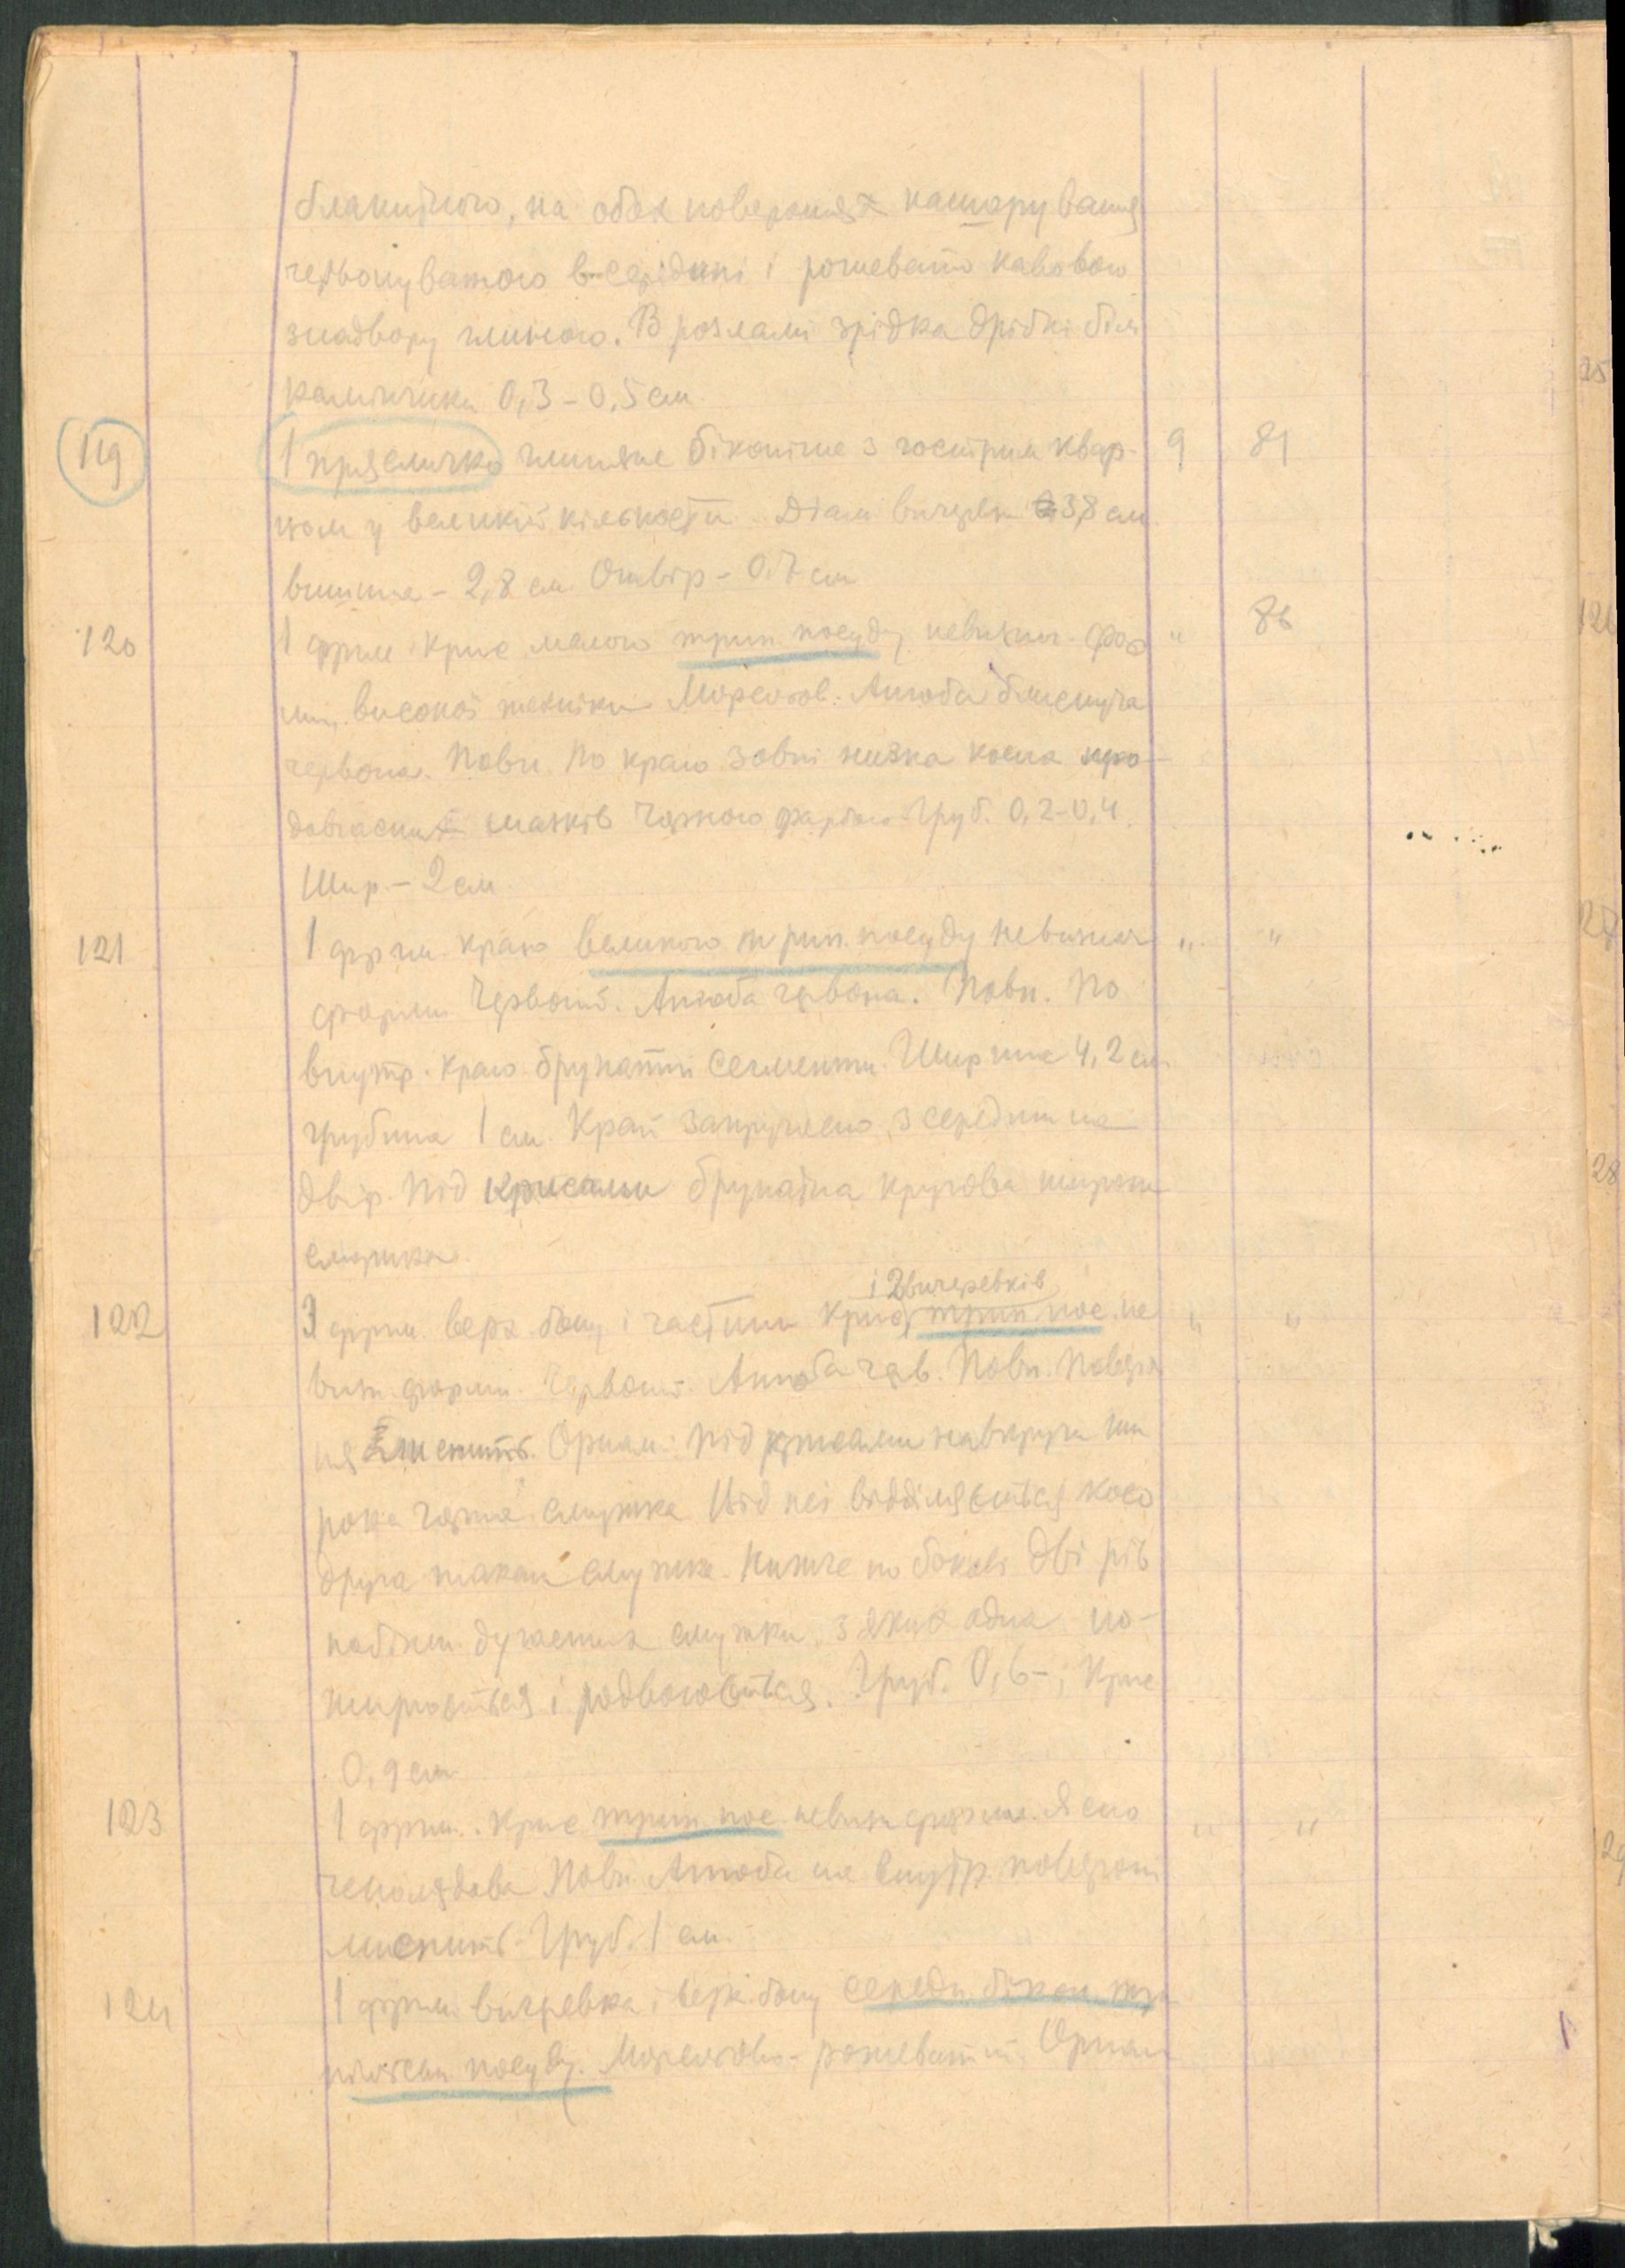 блакитного, на обох поверхнях каширування
червонуватого всередині і рожевато кавового
знадвору глиною. В розламі зрідка дрібні білі
камінчики 0,3 – 0,5 см.
119 1 прясличко глиняне біконічне з гострим квар- 9 81
цом у великій кількости. Діам вичерев 3,8 см.
вишина – 2,8 см. Отвір – 0.7 см
120 1 фрагм. крис малого трип. посуду невизнач. фор " 86
ми, високої техніки Морквов. Ангоба блискуча
червона. Повн. По краю зовні низка косих про-
довгастих мазків чорною фарбою Груб. 0,2–0,4.
Шир. – 2 см.
121 1 фрагм. краю великого трип. посуду невизнач " "
форми. Червоний. Ангоба червона. Повн. По
внутр. краю брунатні сегменти. Ширина 4,2 см.
грубина 1 см. Край закруглено з середини на
двір. Під крисами брунатна кругова широка
смужка.
і 2 вичеревків
122 3 фрагм. верх. боку і частини крис трип пос. не " "
визн. форми. Червоні. Ангоба черв. Повн. Поверх
ня блискить. Орнам: під крисами навкруги ши
рока чорна смужка Від неї відділяється косо
друга така ж смужка. Нижче по бокові дві рів
нобіжні дугасті смужки, з яких одна по-
ширюється і подвоюється. Груб. 0,6–; крис
0,9 см
123 1 фрагм. крис трип пос невизн форми. Ясно " "
Повн. Ангоба на внутр. поверхні
лиснить. Груб. 1 см.
124 1 фрагм. вичеревка і верх. боку середн. бікон. три
пільськ посуду. Морквово-рожеватий. Орнам